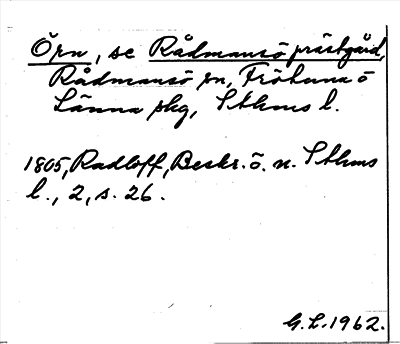 Örn, se Rådmansö prästgård,
Rådmansö sn, Frötuna o
Länna skg, Sthms l.
1805, Radloff, Beskr. ö. n. Sthms
l., 2, s. 26.
G.L. 1962.